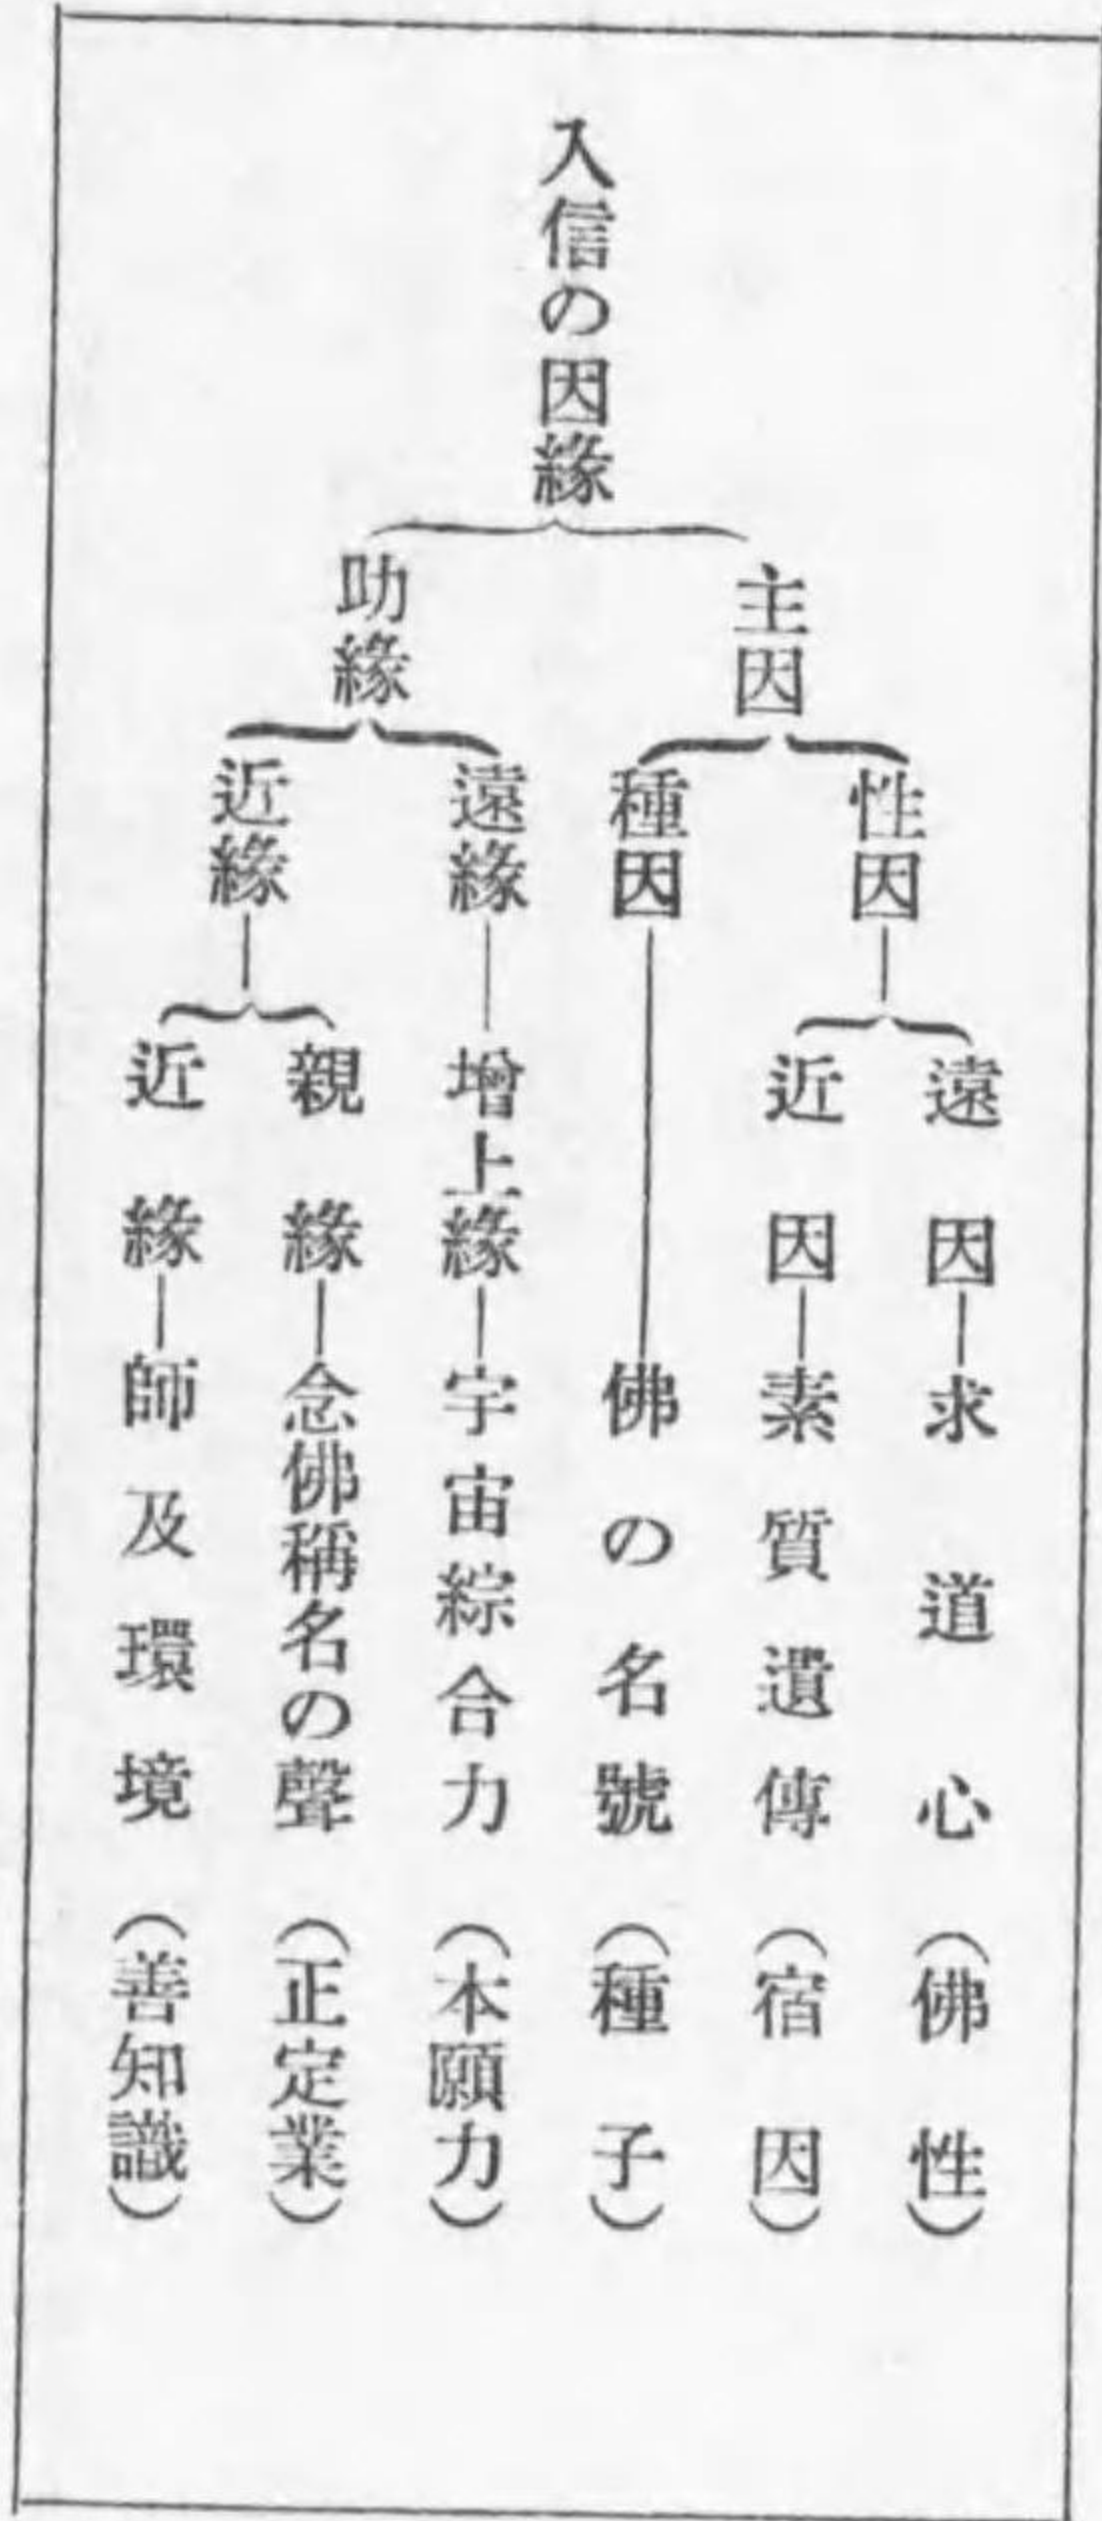 入信の因緣
主因
性因
遠因―求道心(佛性)
近因―素質遺傳(宿因)
種因―佛の名號(種子)
助緣
遠緣―增上緣―宇宙綜合力(本願力)
近緣
親緣―念佛稱名の聲(正定業)
近緣―師及環境(善知識)